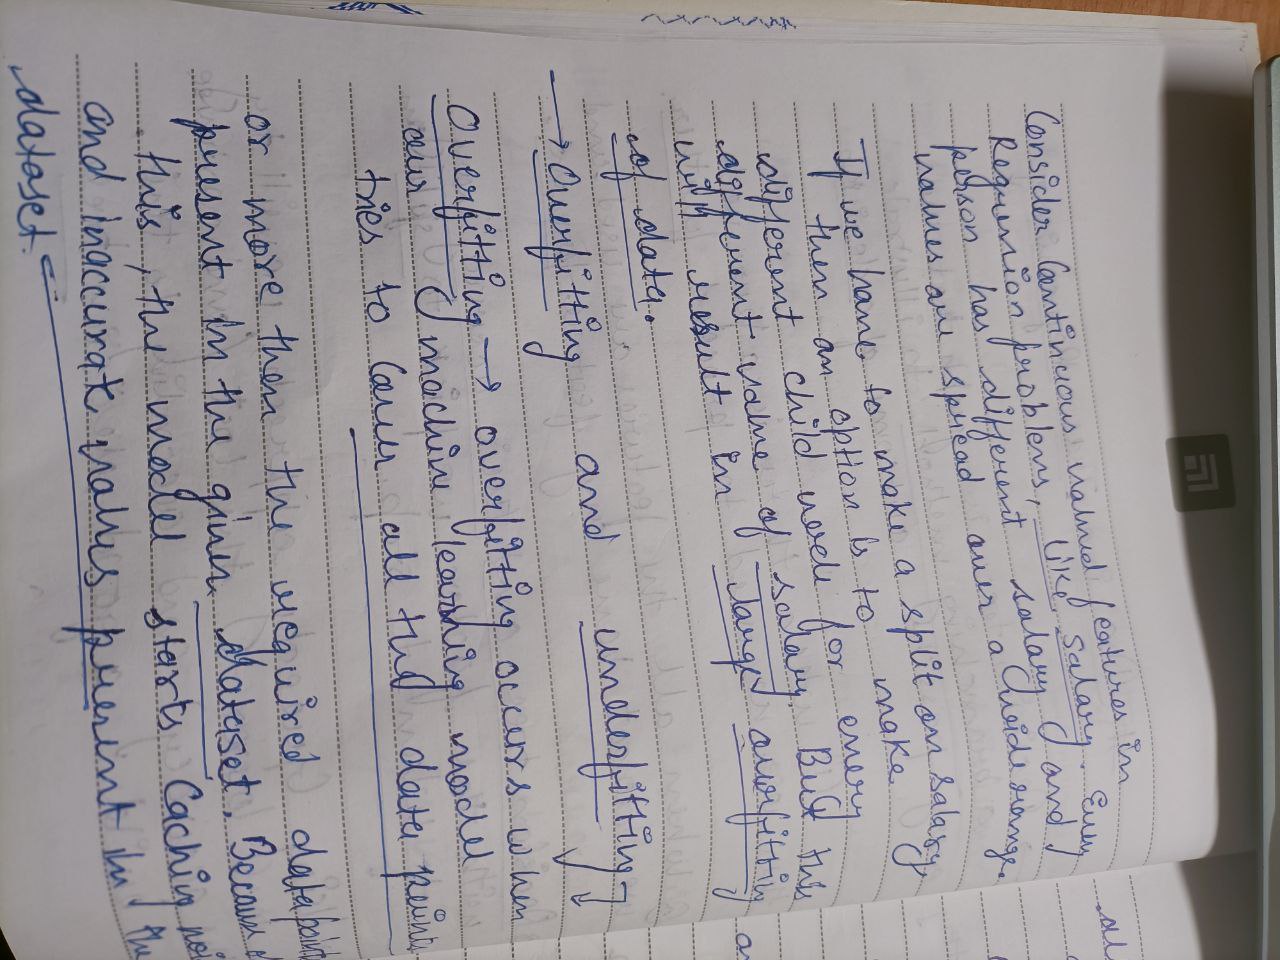 Consider Continuous valued features in
Regression problems, like salary. Every
person has different salary and
values are spread over a wide range.
If we have to make a split on salary,
then an option is to make
different child node for every
different value of salary. But this
will result in large overfitting
of data.
→ Overfitting and underfitting
Overfitting → overfitting occurs when
our machine learning model
tries to cover all the data points
or more then the required data point
present in the given dataset. Because
this, the model starts Caching
and inaccurate values present in the
dataset.